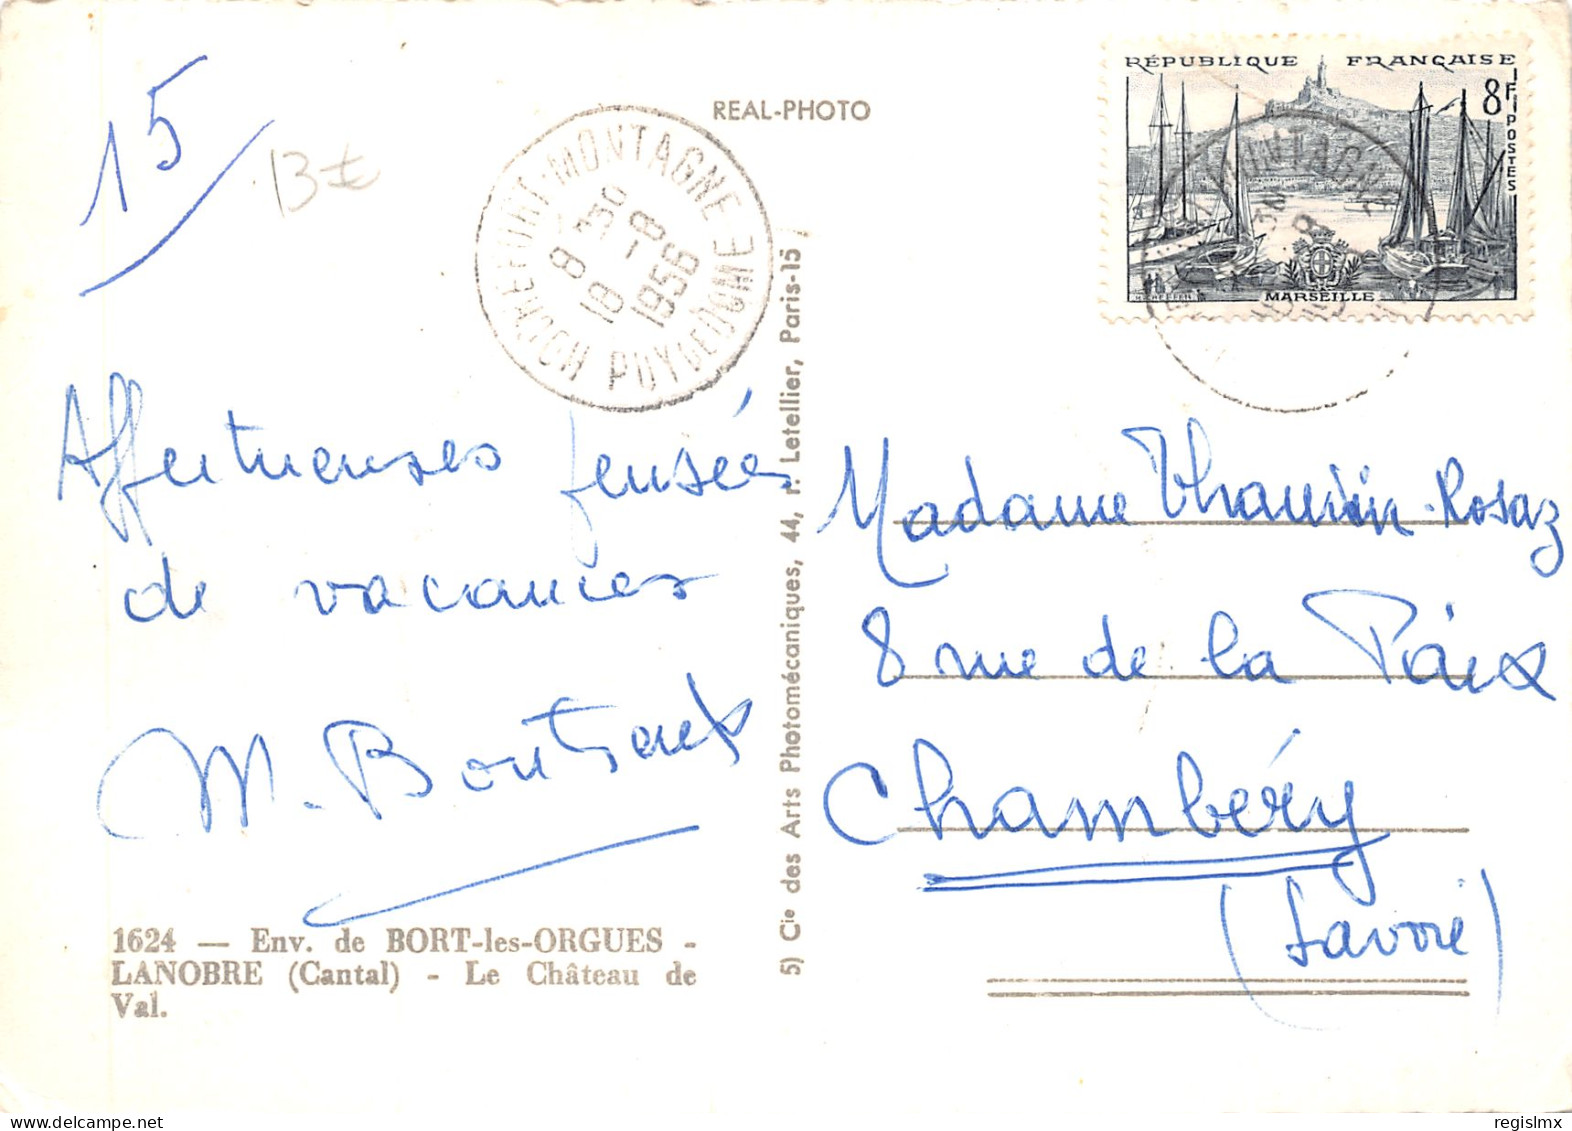 15
13 €
REAL-PHOTO
ROCHEFORT-MONTAGNE
8 30
18 -8
1956
PUY DE DOME
RÉPUBLIQUE FRANÇAISE
8F
POSTES
MARSEILLE
Affectueuses pensées
de vacances
M.
1624 — Env. de BORT-les-ORGUES -
LANOBRE (Cantal) - Le Château de
Val.
5) Cie des Arts Photomécaniques, 44, r. Letellier, Paris-15
Madame Rosaz
8 rue de la Paix
Chambéry
(Savoie)
delcampe.net
regislmx